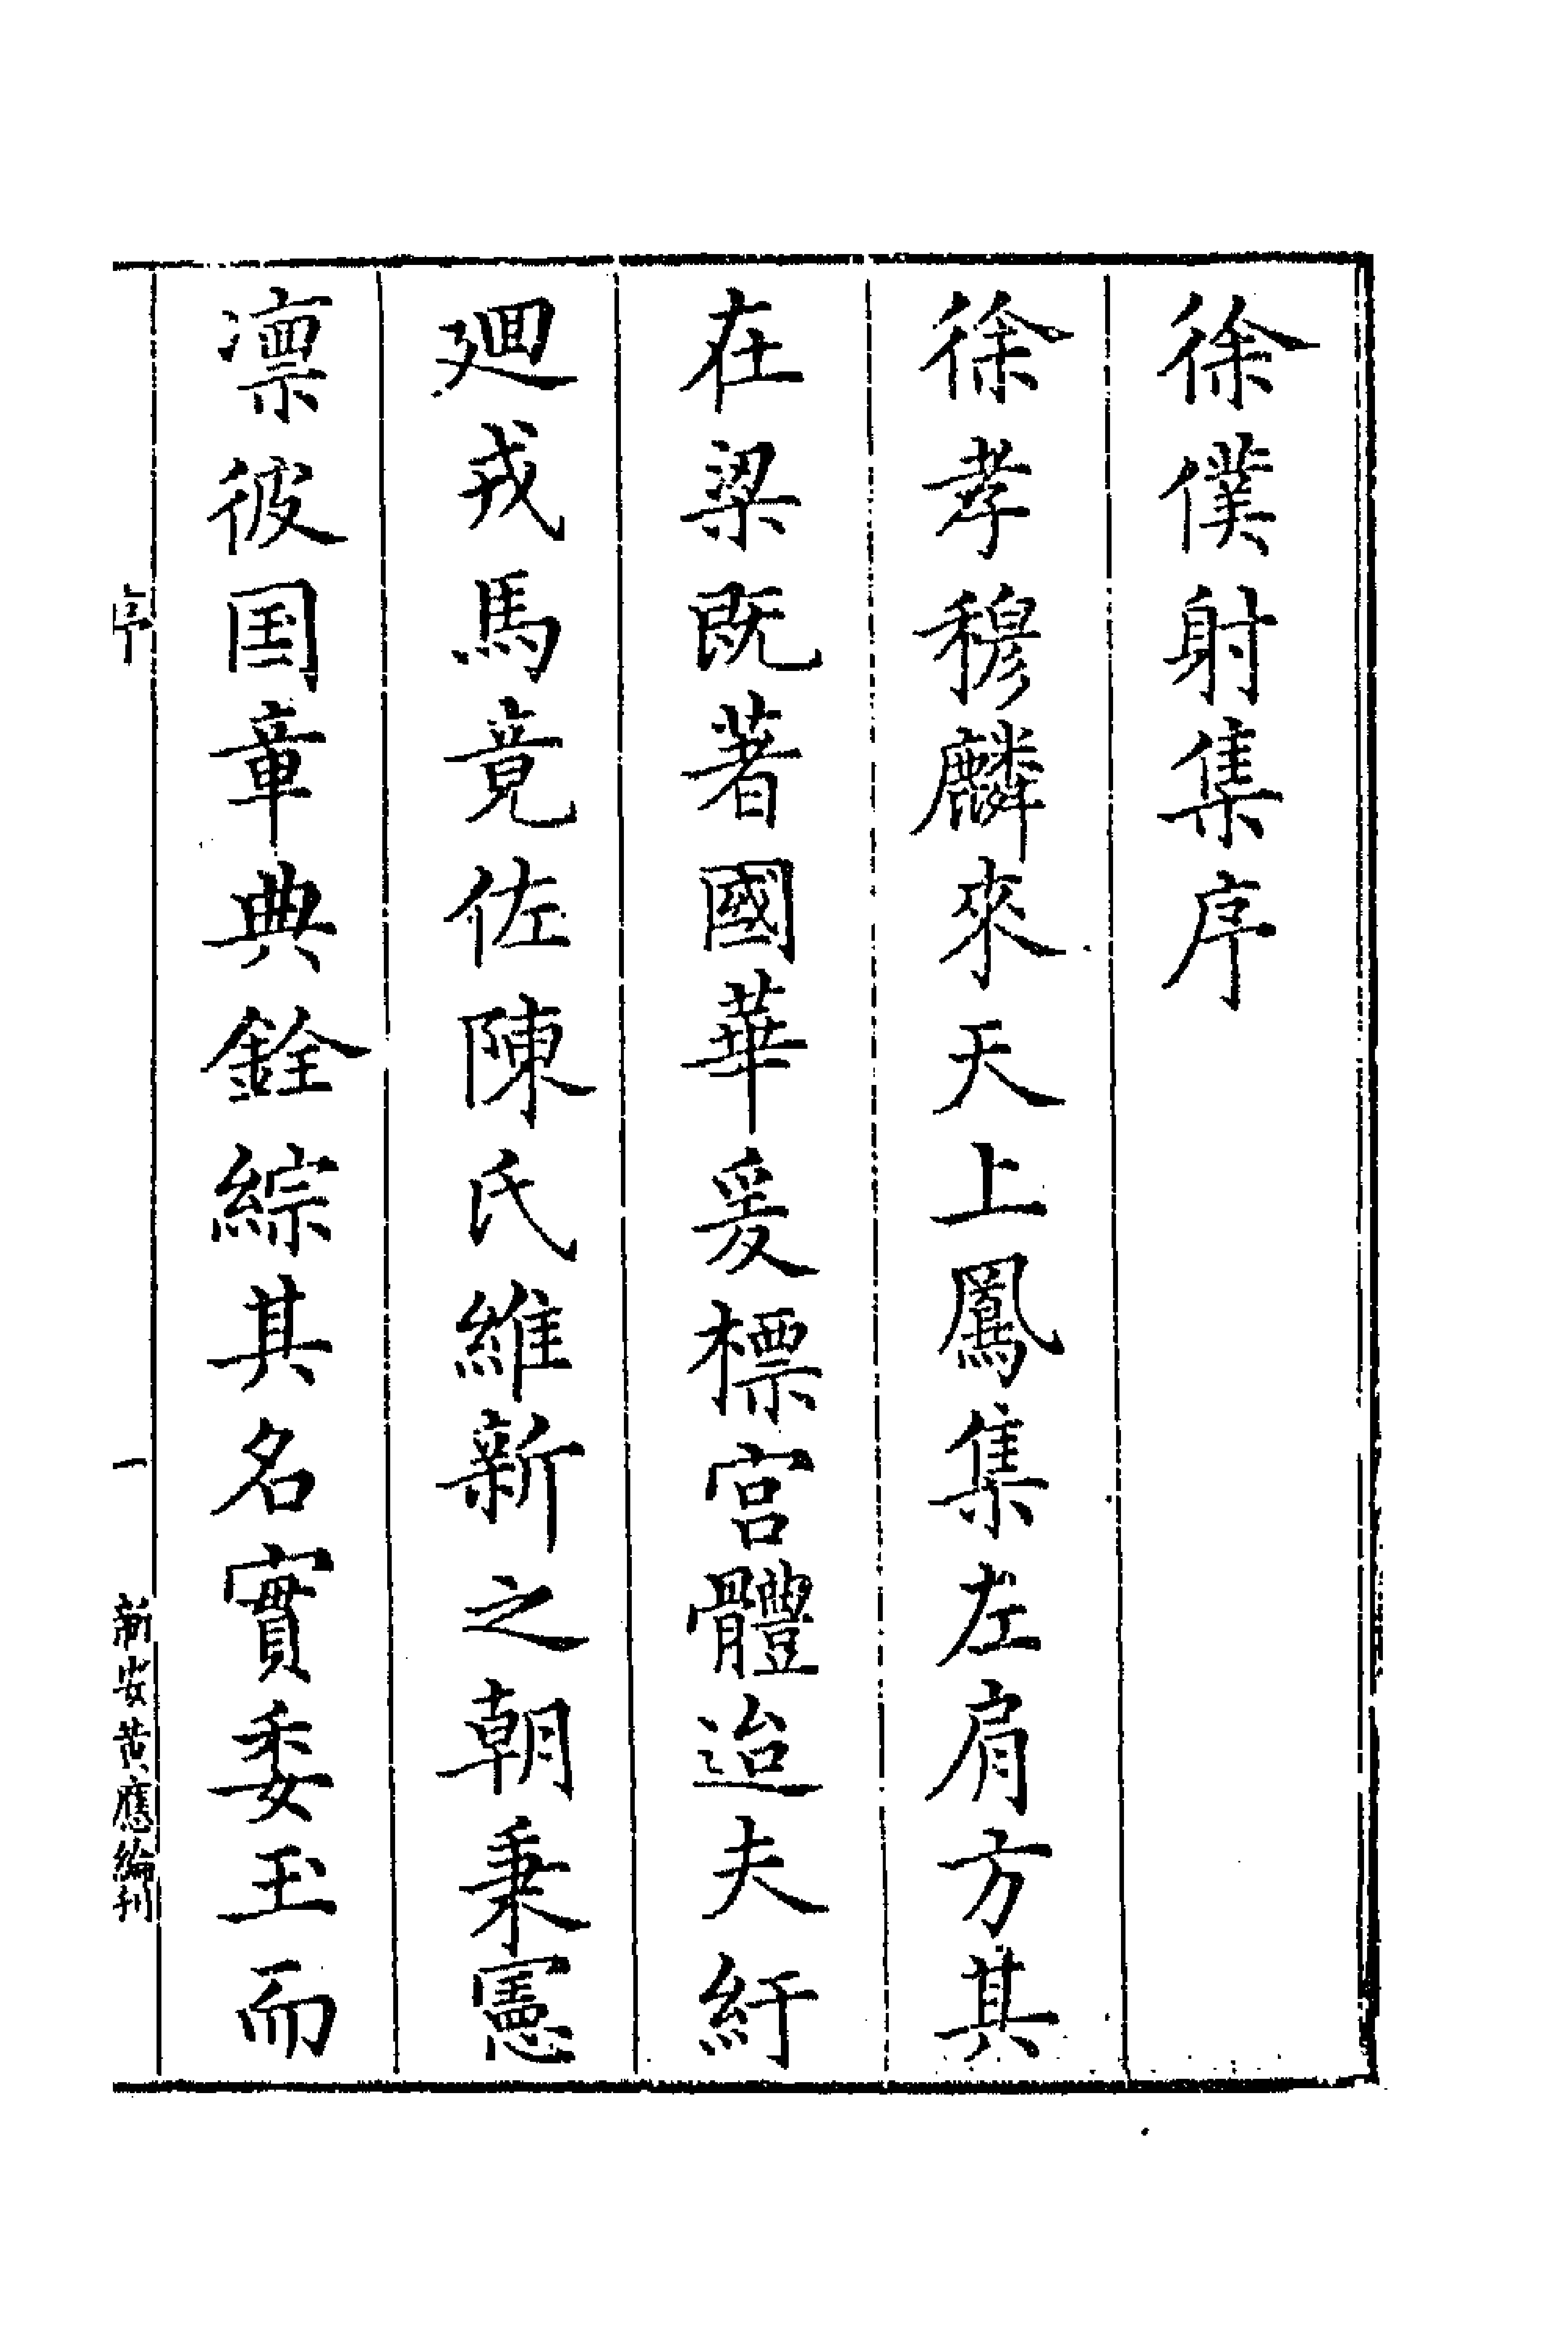 徐僕射集序
徐孝穆麟來天上鳳集左肩方其
在梁既著國華爰標宮體迨夫紆
廽戎馬竟佐陳氏維新之朝秉憲
凛彼囯章典銓綜其名實委玉而
序
一
新安黄應綸刊